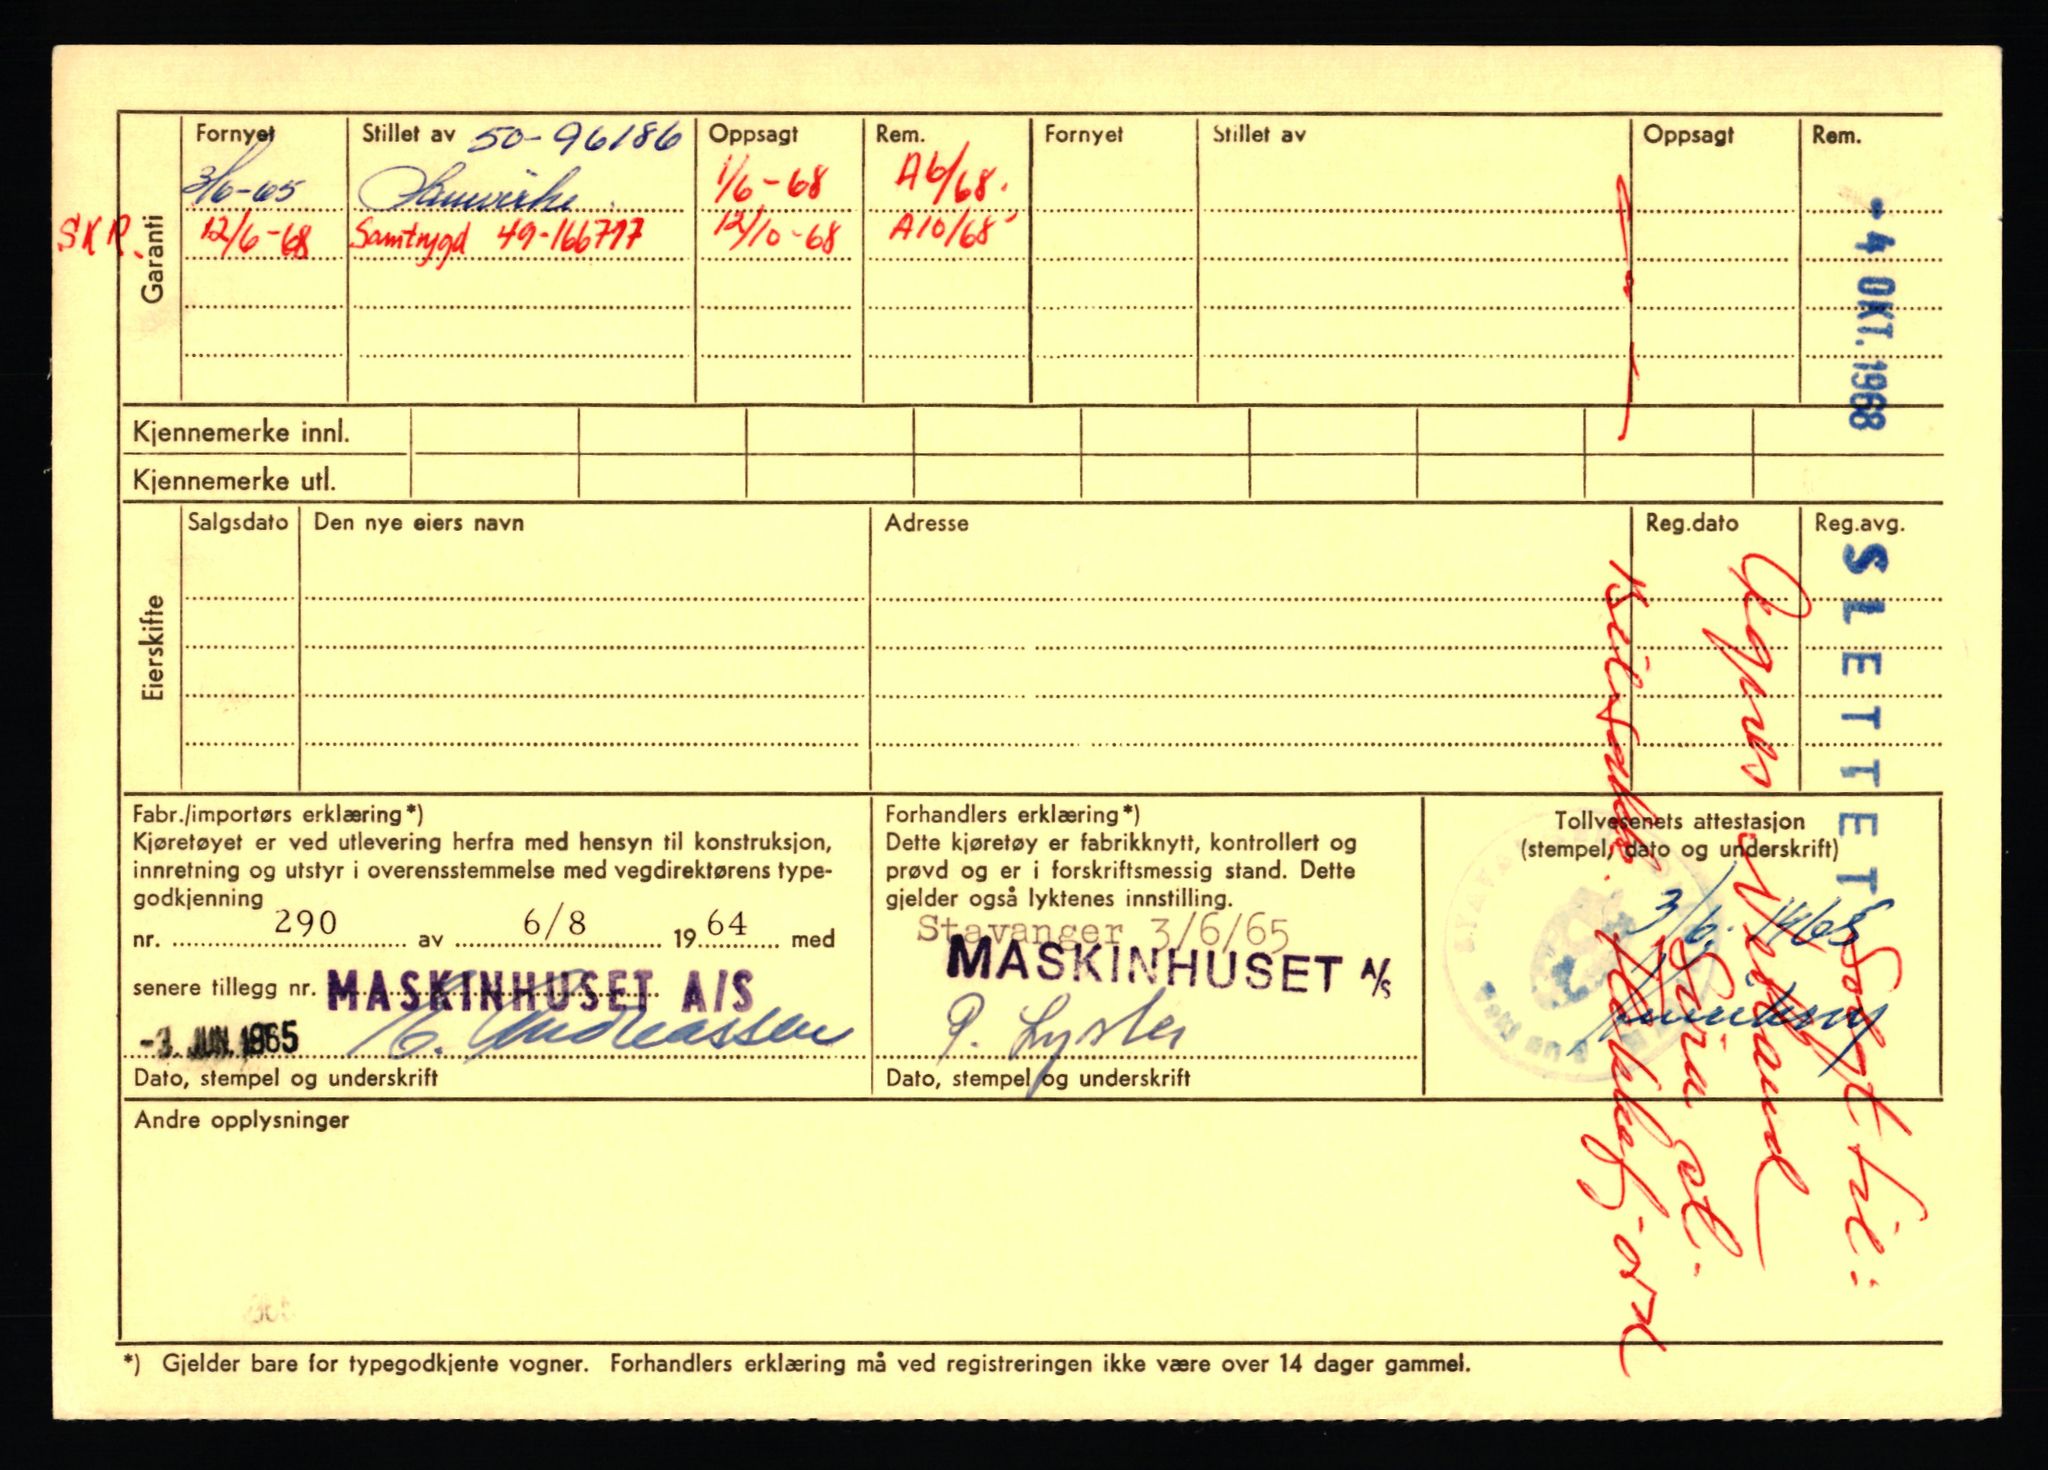 Garanti
Fornyet Stillet av 50-96186 Oppsagt Rem. Fornyet Stillet av Oppsagt Rem.
3/6-65 Samvirke 1/6-68 A6/68.
SKR. 12/6-68 Samtrygd 49-166777 12/10-68 A10/68
-4 OKT. 1968
Kjennemerke innl.
Kjennemerke utl.
Eierskifte
Salgsdato Den nye eiers navn Adresse Reg.dato Reg.avg.
SLETTET
Solgt til:
Agnes
Fabr./importørs erklæring*)
Kjøretøyet er ved utlevering herfra med hensyn til konstruksjon,
innretning og utstyr i overensstemmelse med vegdirektørens type-
godkjenning
nr. 290 av 6/8 1964 med
senere tillegg nr. MASKINHUSET A/S
-3. JUN. 1965 C. Andreassen
Dato, stempel og underskrift
Forhandlers erklæring*)
Dette kjøretøy er fabrikknytt, kontrollert og
prøvd og er i forskriftsmessig stand. Dette
gjelder også lyktenes innstilling.
Stavanger 3/6/65
MASKINHUSET A/S
P. Lyster
Dato, stempel og underskrift
Tollvesenets attestasjon
(stempel, dato og underskrift)
3/6. 1965
Andre opplysninger
*) Gjelder bare for typegodkjente vogner. Forhandlers erklæring må ved registreringen ikke være over 14 dager gammel.